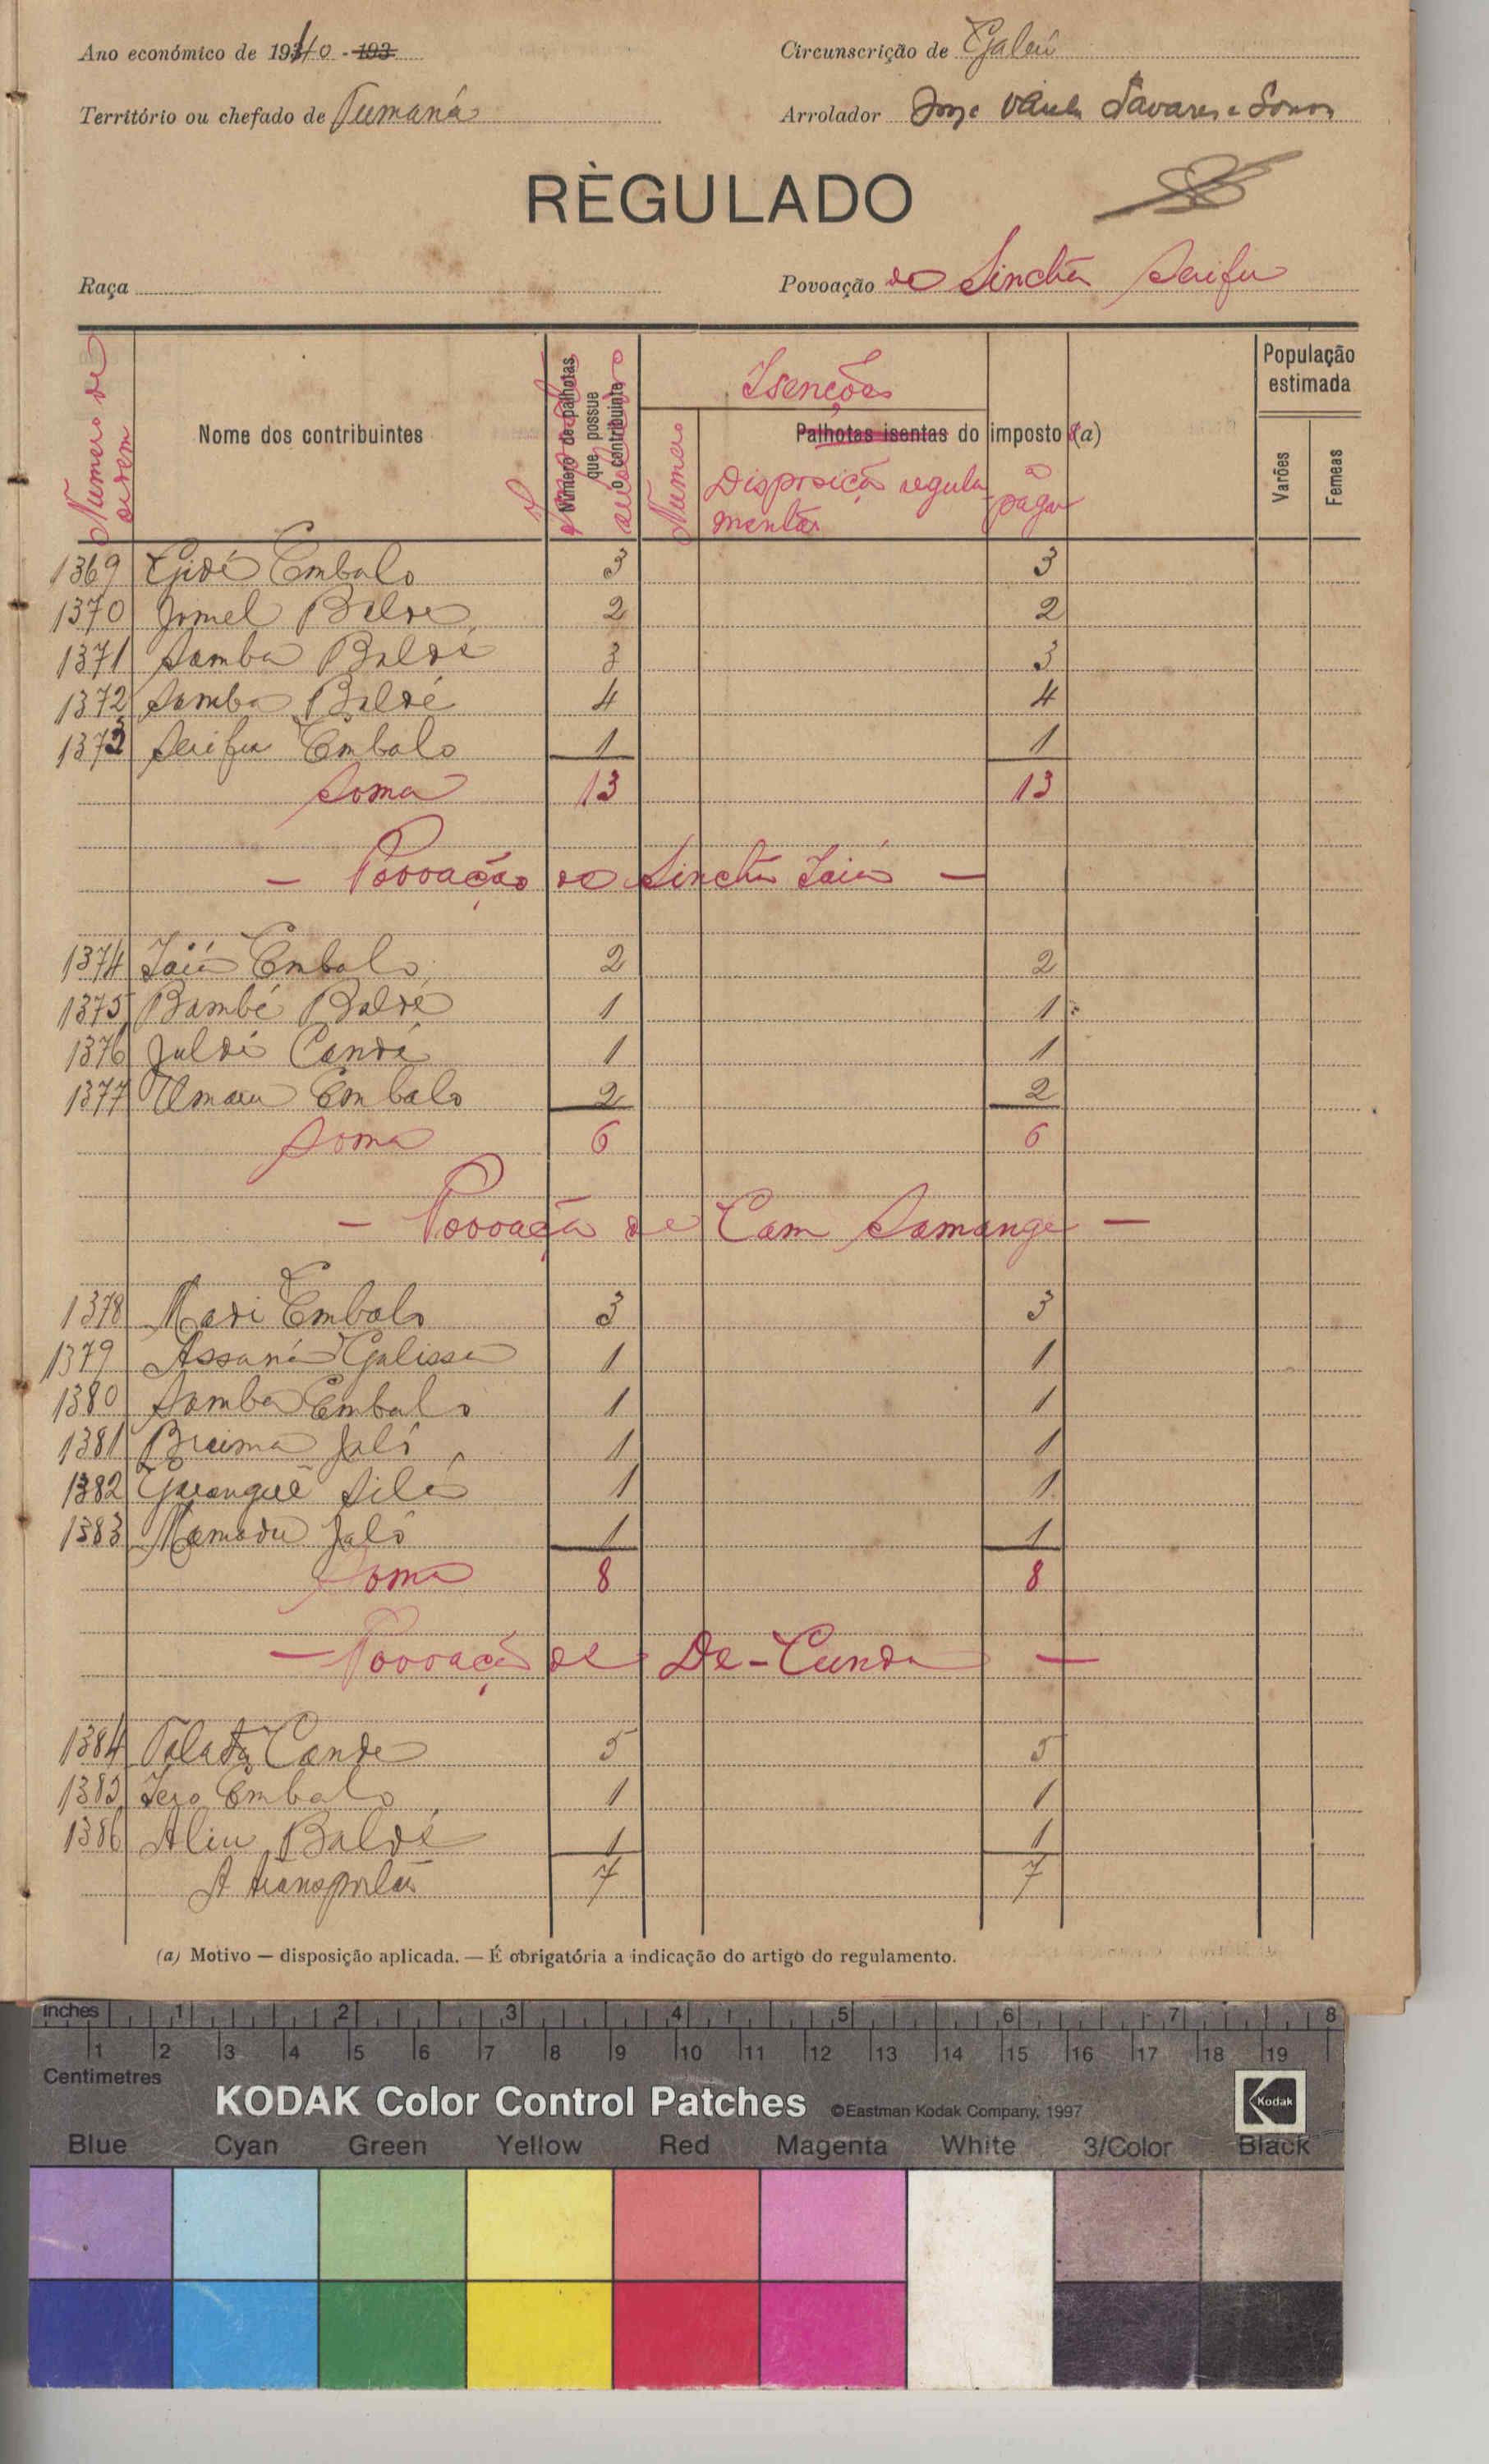 Ano económico de 1940 - 193
Circunscrição de Gabú
Território ou chefado de Tumaná
Arrolador Tavares e Sousa
RÈGULADO
Raça
Povoação do Sinchã Seifu
Numero de ordem
Nome dos contribuintes
Número de palhotas que possue o contribuinte
Isenções
Numero
Palhotas isentas do imposto (a)
Disposição regulamentar
a pagar
População estimada
Varões
Femeas
1369 Gidé Embalo 3 3
1370 Jomel Balde 2 2
1371 Samba Baldé 3 3
1372 Samba Baldé 4 4
1373 Seifu Embalo 1 1
Soma 13 13
- Povoação do Sinchã Iaiá -
1374 Iaiá Embalo 2 2
1375 Bambé Baldé 1 1
1376 Juldé Candé 1 1
1377 Umaru Embalo 2 2
Soma 6 6
- Povoação de Cam Samange -
1378 Madi Embalo 3 3
1379 Assaná Galissa 1 1
1380 Samba Embalo 1 1
1381 Braima Jaló 1 1
1382 Silá 1 1
1383 Mamadu Jaló 1 1
Soma 8 8
- Povoação de De-Cunda -
1384 Candé 5 5
1385 Iero Embalo 1 1
1386 Aliu Baldé 1 1
A transportar 7 7
(a) Motivo — disposição aplicada. — É obrigatória a indicação do artigo do regulamento.
inches 1 2 3 4 5 6 7 8
1 2 3 4 5 6 7 8 9 10 11 12 13 14 15 16 17 18 19
Centimetres
KODAK Color Control Patches ©Eastman Kodak Company, 1997 Kodak
Blue Cyan Green Yellow Red Magenta White 3/Color Black